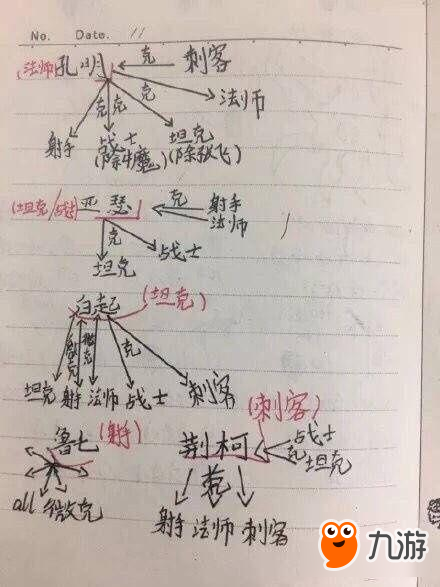 No. Date. 11
(法师) 孔明 克 刺客
克 克 克 法师
射手 战士 坦克
(除牛魔) (除张飞)
(坦克/战士) 亚瑟 克 射手
法师
克 战士
坦克
白起 (坦克)
微克 微克 克
坦克 射手 法师 战士 刺客
鲁七 (射手) 荆柯 (刺客)
克 战士
坦克
all 微克 克
射手 法师 刺客
九游